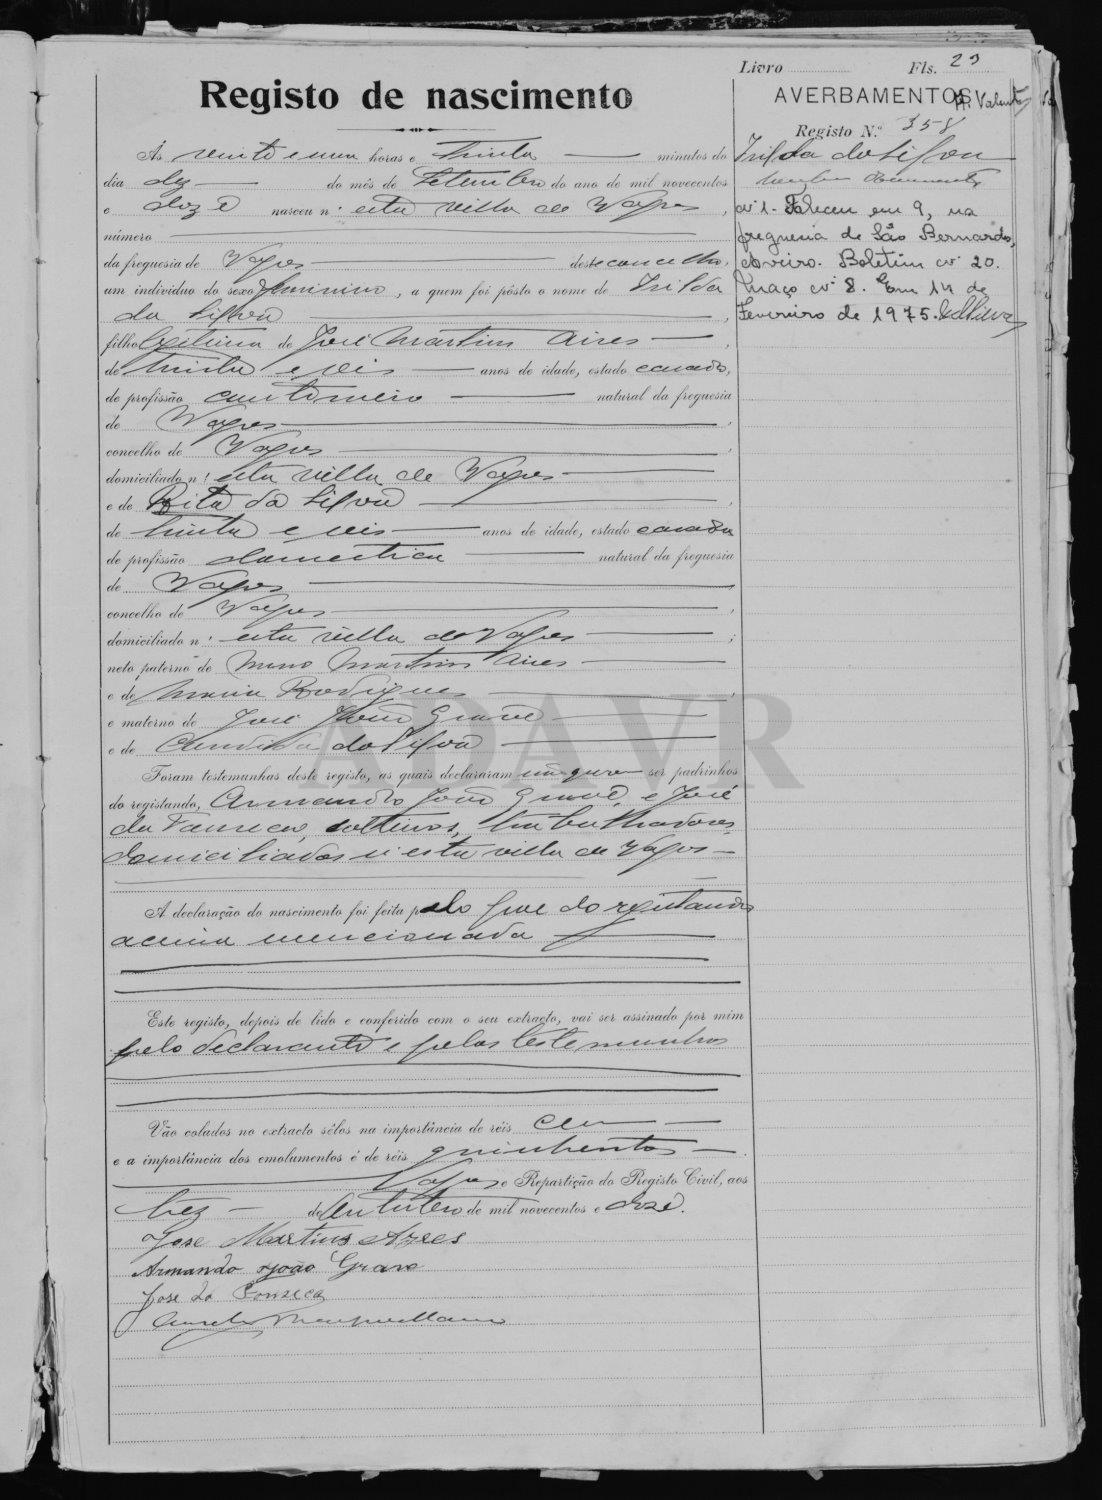 Livro Fls. 29
Registo de nascimento
AVERBAMENTOS
Registo N.º 358
Ás vinte e uma horas e trinta minutos do
dia dez do mês de Setembro do ano de mil novecentos
e doze nasceu n'esta villa de Vagos,
número
da freguesia de Vagos deste concelho
um indivíduo do sexo feminino, a quem foi pôsto o nome de Irilda
da Silva,
filho legitima de José Martins Aires,
de trinta e seis anos de idade, estado casado,
de profissão natural da freguesia
de Vagos,
concelho de Vagos,
domiciliado n'esta villa de Vagos
e de Rita da Silva,
de trinta e seis anos de idade, estado casada
de profissão domestica natural da freguesia
de Vagos
concelho de Vagos,
domiciliado n'esta villa de Vagos;
neto paterno de Martins Aires
e de Maria Rodrigues,
e materno de José João Grave
e de Candida da Silva
Foram testemunhas deste registo, as quais declararam não querer ser padrinhos
do registando, Armando João Grave e José
da Fonseca, solteiros, trabalhadores,
domiciliados n'esta villa de Vagos
A declaração do nascimento foi feita pelo pae do registando
acima mencionada
Este registo, depois de lido e conferido com o seu extracto, vai ser assinado por mim
pelo declarante e pelas testemunhas
Vão colados no extracto sêlos na importância de réis cem
e a importância dos emolumentos é de réis quinhentos.
Vagos e Repartição do Registo Civil, aos
trez de Outubro de mil novecentos e doze.
Jose Martins Ayres
Armando João Grave
Jose da Fonseca
Irilda da Silva
nº 1. Faleceu em 9, na
freguesia de São Bernardo,
Aveiro. Boletim nº 20.
Maço nº 8. Em 14 de
Fevereiro de 1975.
ADAVR